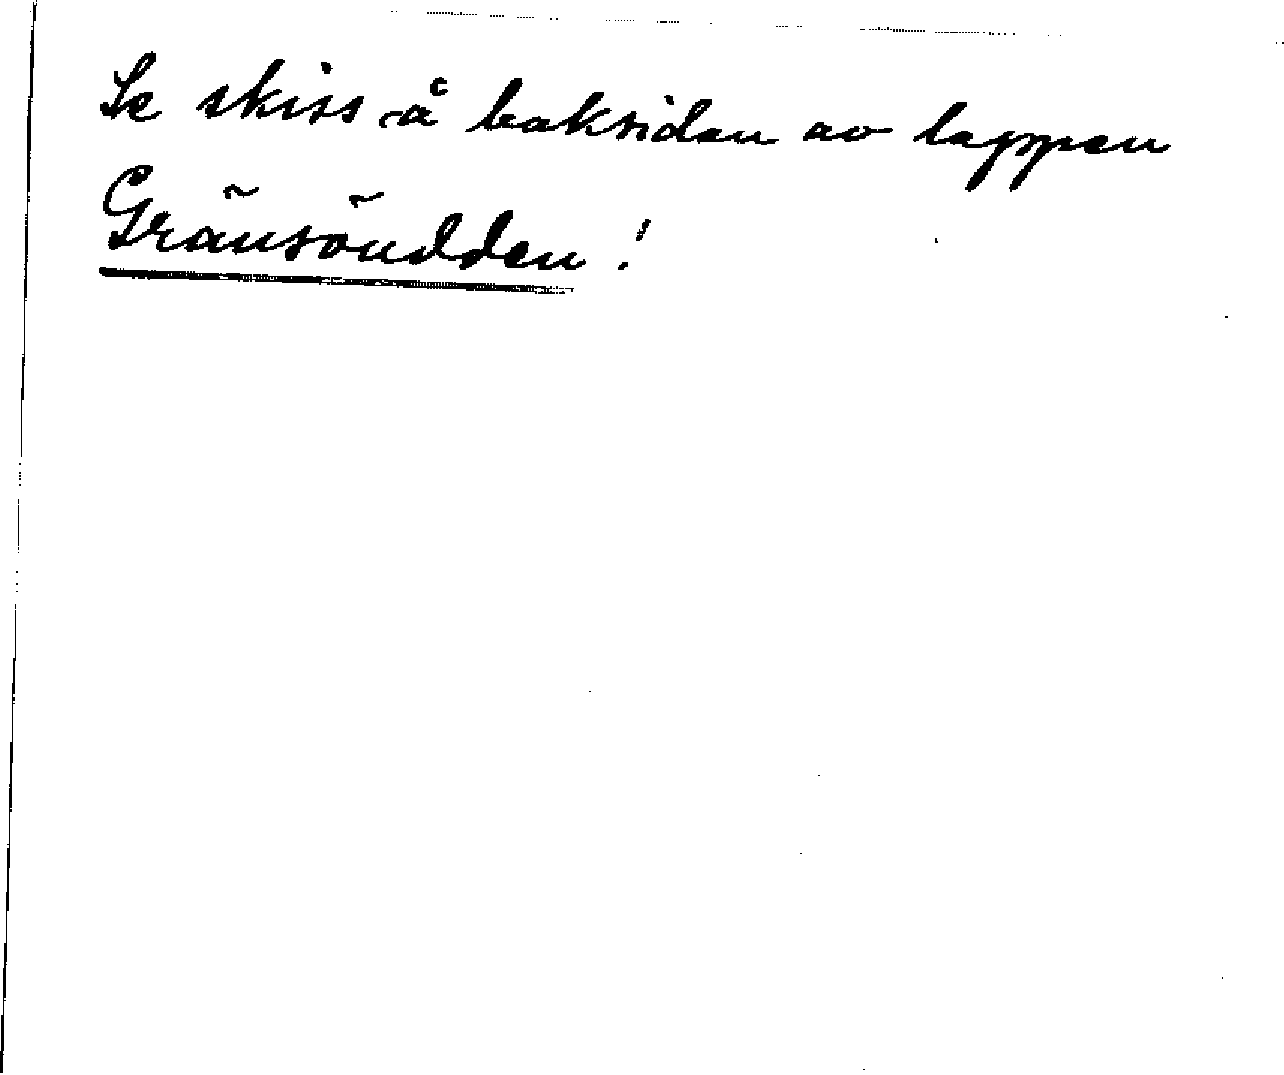 Se skiss å baksidan av lappen
Gränsöudden!